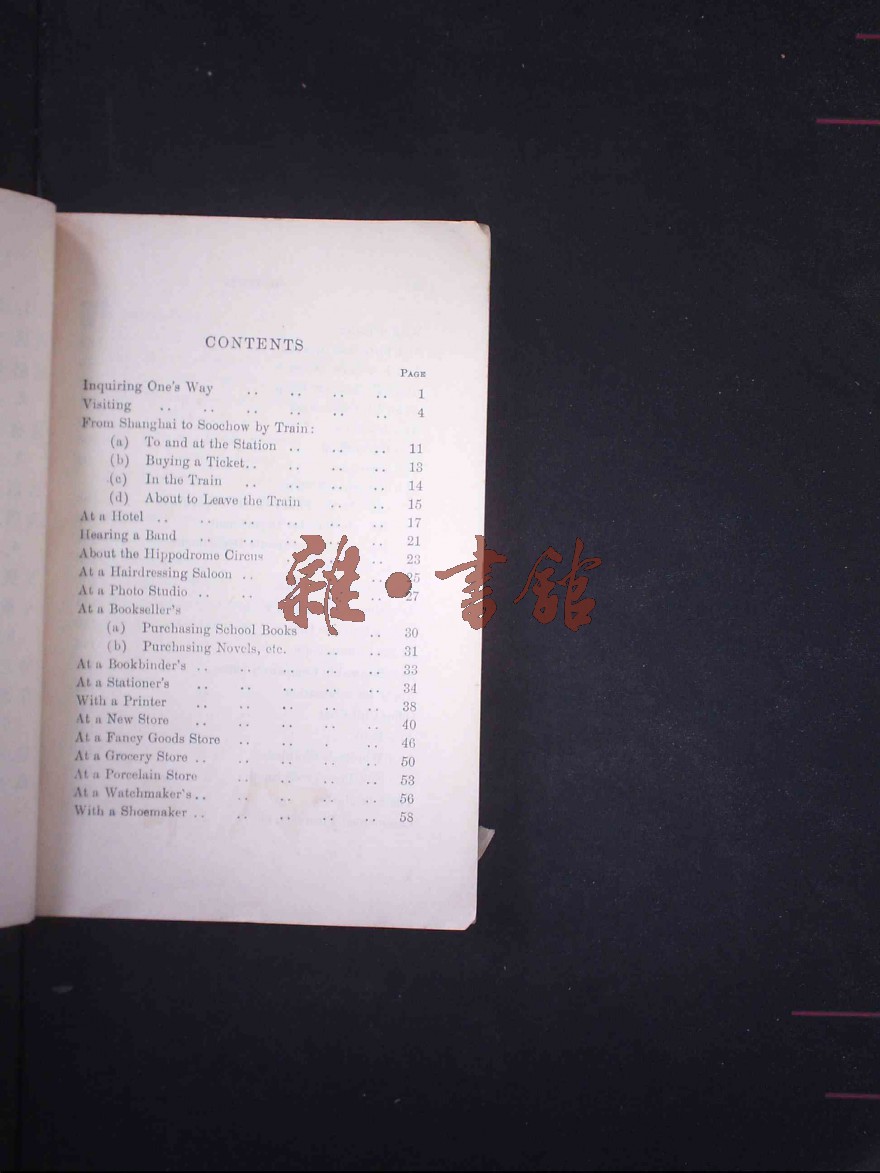 CONTENTS
PAGE
Inquiring One's Way .. .. .. .. 1
Visiting .. .. .. .. .. .. 4
From Shanghai to Soochow by Train:
(a) To and at the Station .. .. .. 11
(b) Buying a Ticket.. .. .. .. 13
(c) In the Train .. .. .. .. 14
(d) About to Leave the Train .. .. 15
At a Hotel .. .. .. .. .. .. 17
Hearing a Band .. .. .. .. .. 21
About the Hippodrome Circus .. .. .. 23
At a Hairdressing Saloon .. .. .. .. 25
At a Photo Studio .. .. .. .. .. 27
At a Bookseller's
(a) Purchasing School Books .. .. 30
(b) Purchasing Novels, etc. .. .. 31
At a Bookbinder's .. .. .. .. .. 33
At a Stationer's .. .. .. .. .. 34
With a Printer .. .. .. .. .. 38
At a New Store .. .. .. .. .. 40
At a Fancy Goods Store .. .. . .. 46
At a Grocery Store .. .. .. .. .. 50
At a Porcelain Store .. .. .. .. 53
At a Watchmaker's .. .. .. .. .. 56
With a Shoemaker .. .. .. .. .. 58
雜·書館